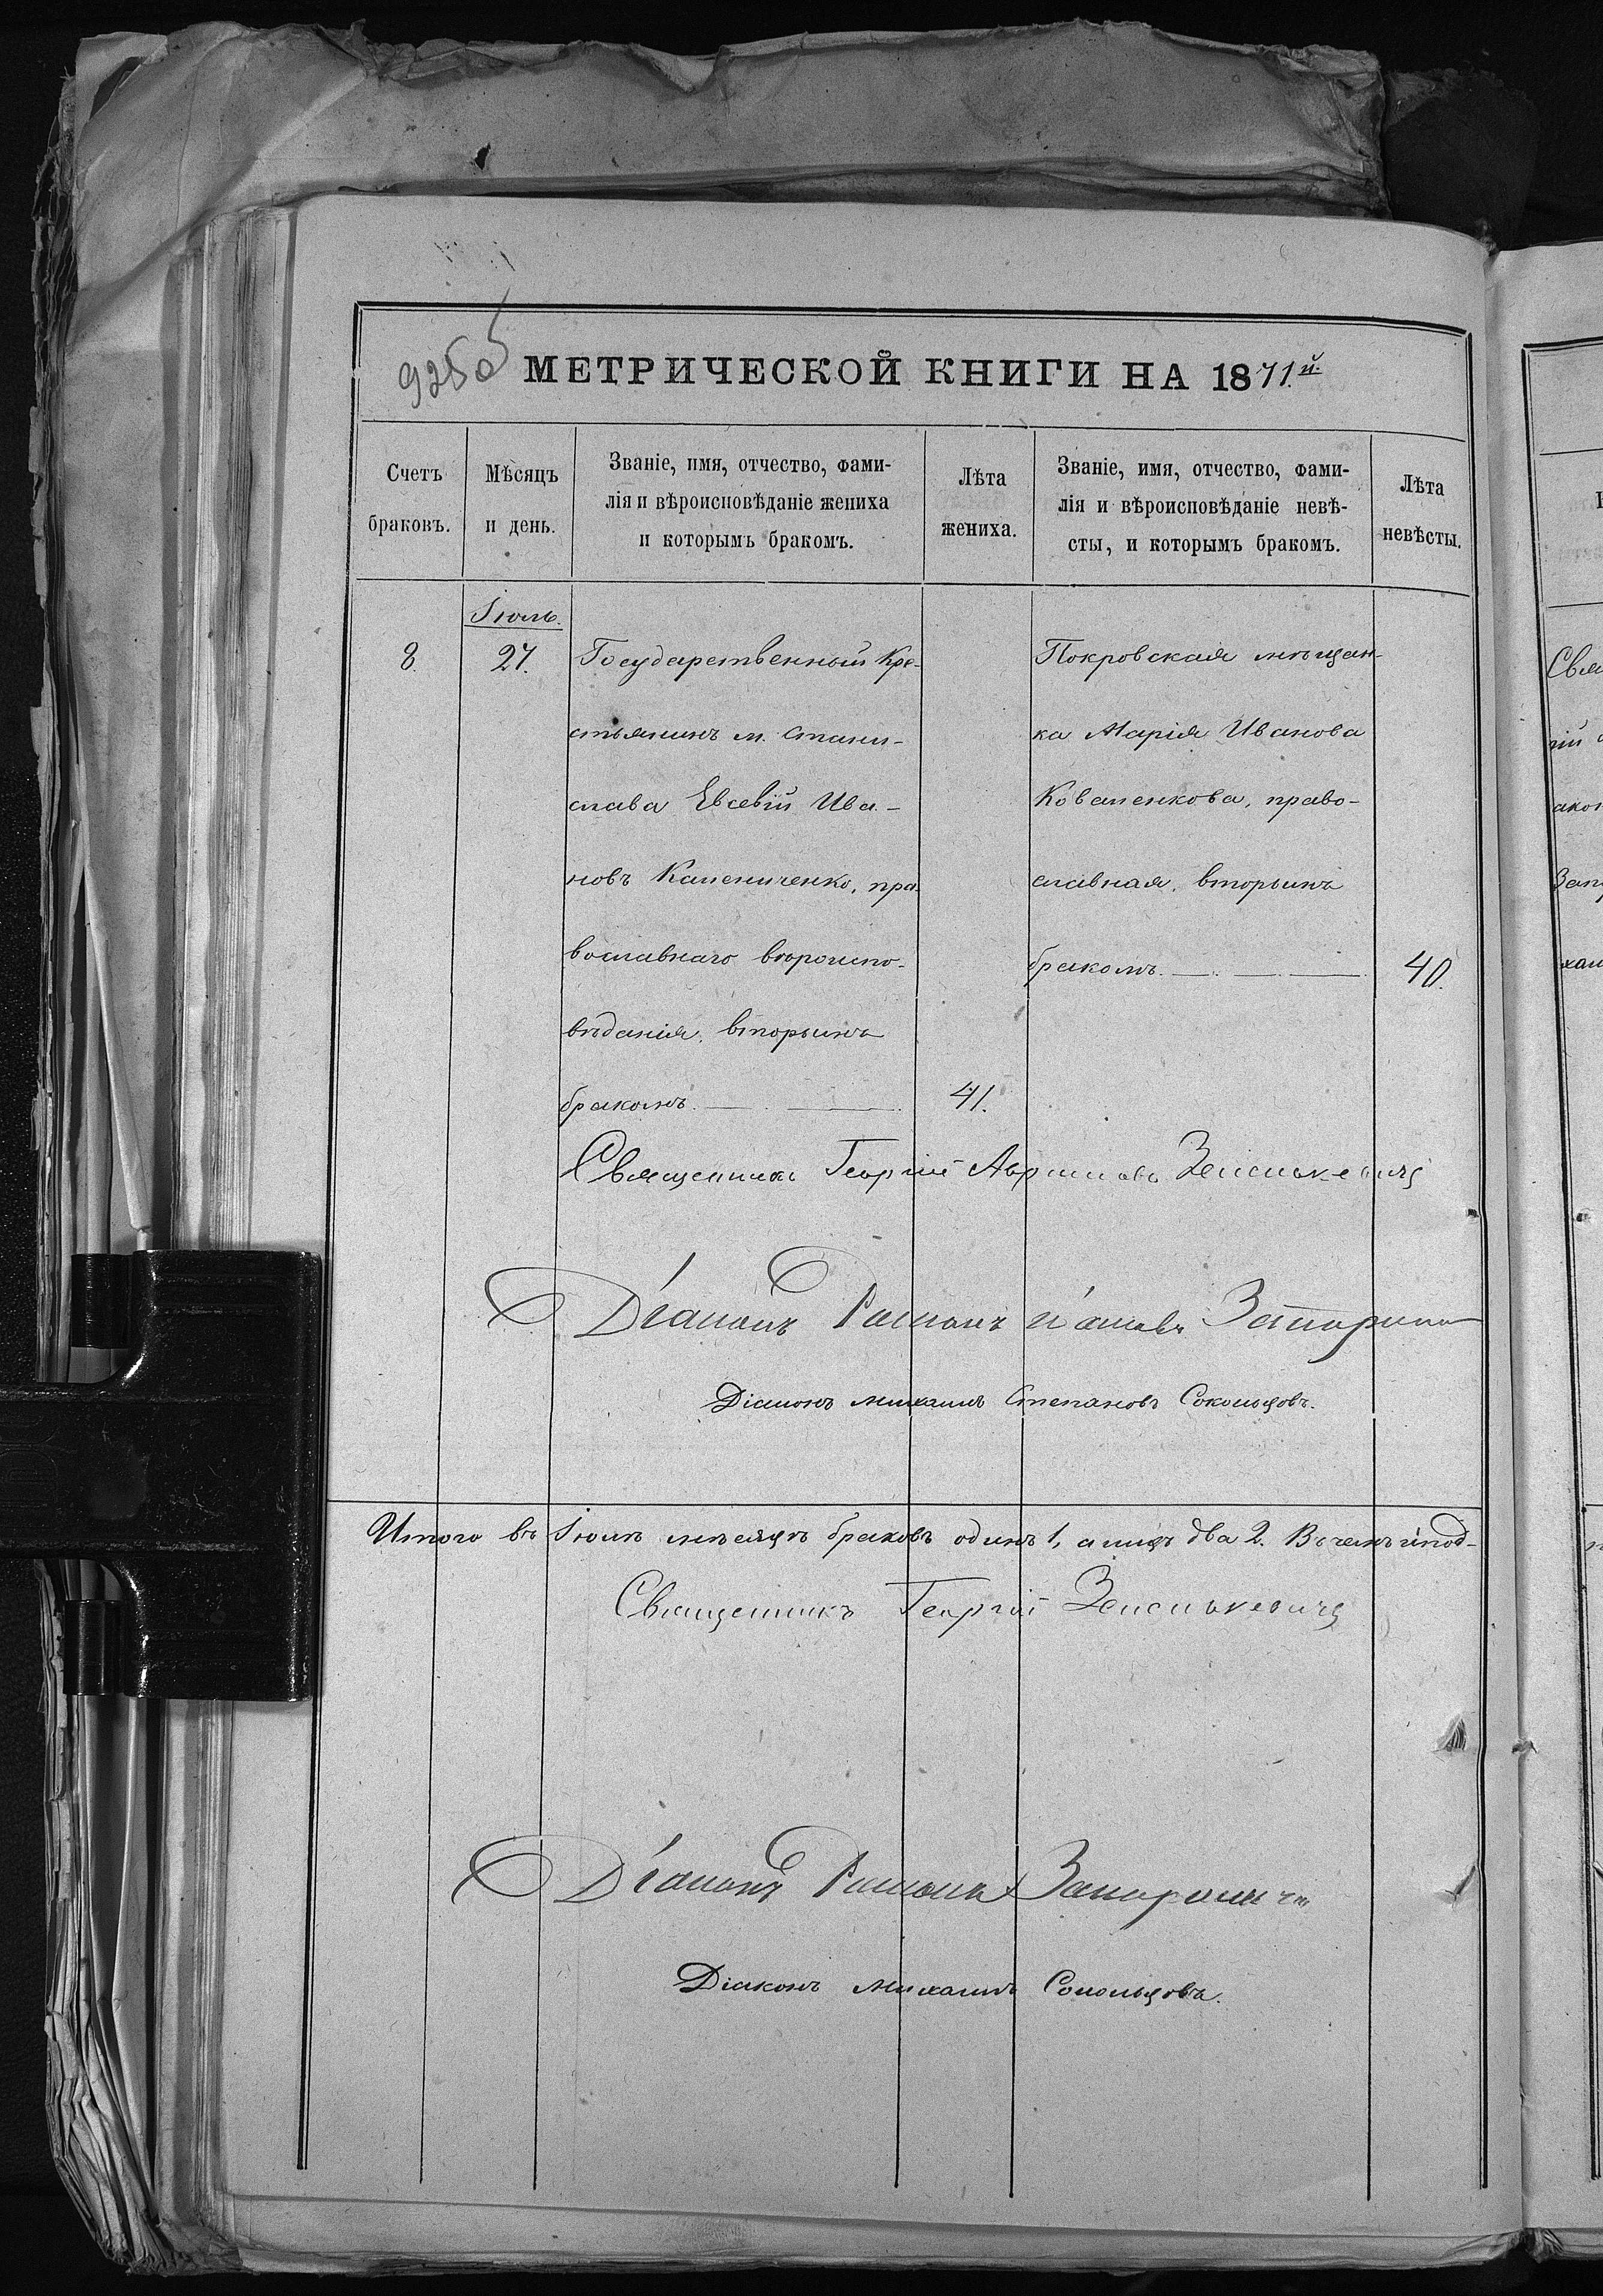 925об
МЕТРИЧЕСКОЙ КНИГИ НА 1871.й
Счетъ браковъ.
Мѣсяцъ и день.
Званіе, имя, отчество, фами-
лія и вѣроисповѣданіе жениха
и которымъ бракомъ.
Лѣта жениха.
Званіе, имя, отчество, фами-
лія и вѣроисповѣданіе невѣ-
сты, и которымъ бракомъ.
Лѣта невѣсты.
Іюль.
8.
27.
Государственный кре-
стьянинъ м. Стани-
слава Евсевій Ива-
новъ Калениченко, пра-
вославнаго вѣроиспо-
вѣданія, вторымъ
бракомъ.
41.
Покровская мѣщан-
ка Марія Иванова
Коваленкова, право-
славная, вторымъ
бракомъ.
40.
Священникъ Георгій Зелинкевичъ
Діаконъ Романъ
Діаконъ Михаилъ Степановъ Сокольцовъ.
Итого въ Іюлѣ мѣсяцѣ браковъ одинъ 1, а лицъ два 2. Въ чемъ и под-
Священникъ Георгій
Діаконъ Романъ
Діаконъ Михаилъ Сокольцовъ.
Свя